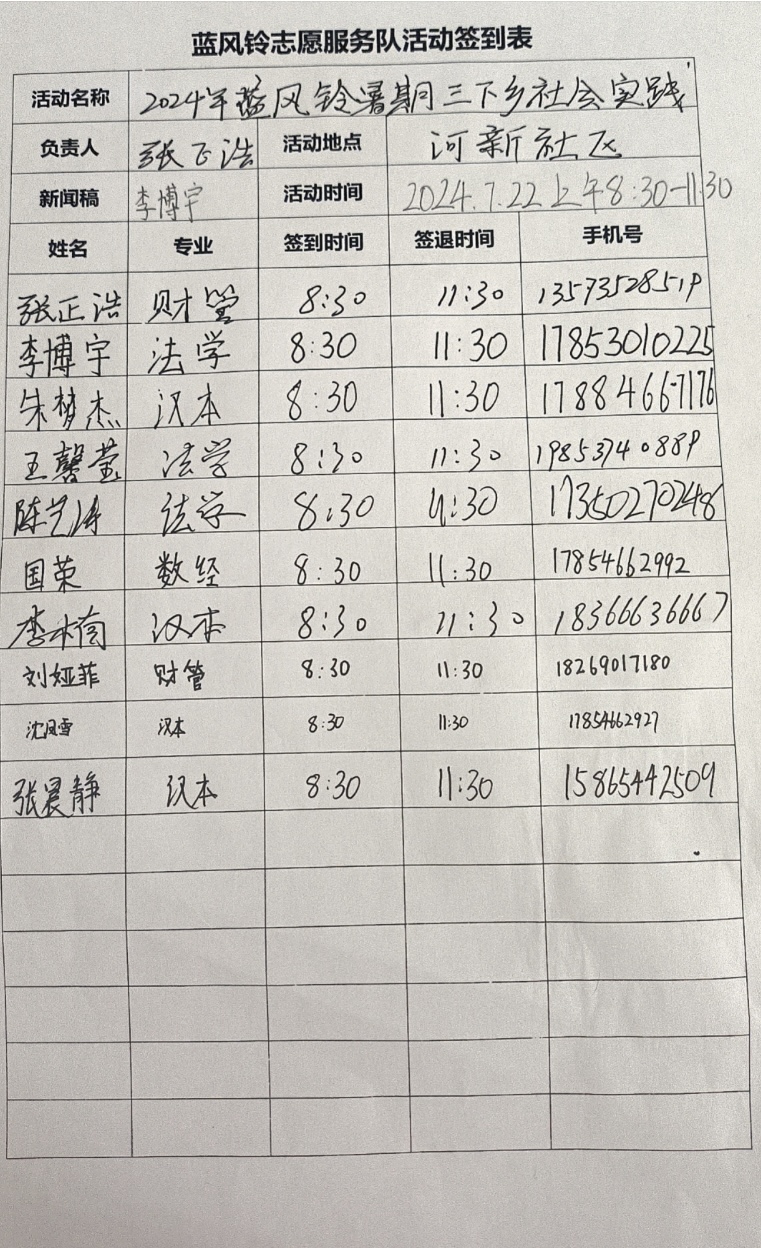 蓝风铃志愿服务队活动签到表
活动名称 2024年蓝风铃暑期三下乡社会实践
负责人 张正浩 活动地点 河新社区
新闻稿 李博宇 活动时间 2024.7.22上午8:30-11:30
姓名 专业 签到时间 签退时间 手机号
张正浩 财管 8:30 11:30 13573528519
李博宇 法学 8:30 11:30 17853010225
朱梦杰 汉本 8:30 11:30 17884667176
王馨莹 法学 8:30 11:30 19853740889
陈艺涛 法学 8:30 11:30 17350270248
国荣 数经 8:30 11:30 17854662992
李 汉本 8:30 11:30 18366636667
刘娅菲 财管 8:30 11:30 18269017180
沈凤雪 汉本 8:30 11:30 17854662927
张晨静 汉本 8:30 11:30 15865442509